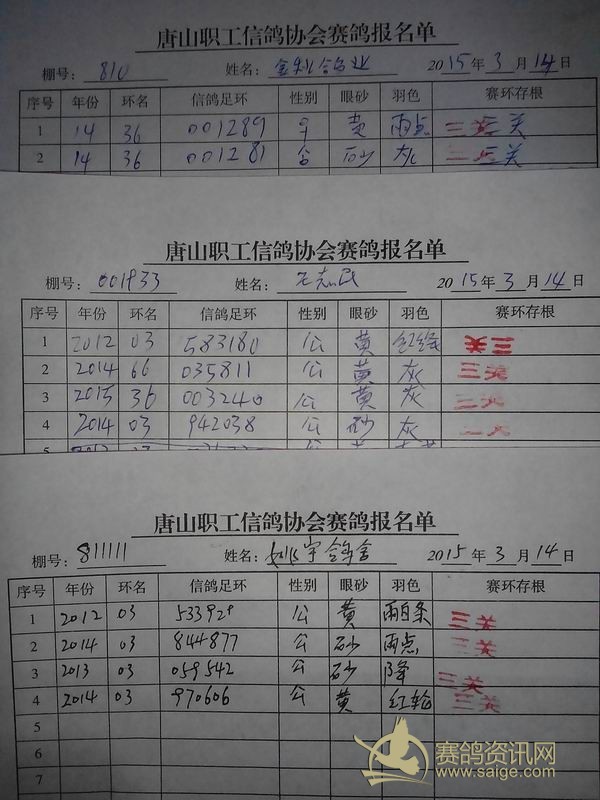 唐山职工信鸽协会赛鸽报名单
棚号: 810 姓名: 鸽业 2015年3月14日
序号 年份 环名 信鸽足环 性别 眼砂 羽色 赛环存根
1 14 36 001289 黄 雨点 三关 三关
2 14 36 001281 公 砂 灰 三关 三关
唐山职工信鸽协会赛鸽报名单
棚号: 001933 姓名: 王志民 2015年3月14日
序号 年份 环名 信鸽足环 性别 眼砂 羽色 赛环存根
1 2012 03 583180 公 黄 红绛 三关
2 2014 66 035811 公 黄 灰 三关
3 2015 36 003240 公 黄 灰 三关
4 2014 03 942038 公 砂 灰 三关
5
唐山职工信鸽协会赛鸽报名单
棚号: 811111 姓名: 宇鸽舍 2015年3月14日
序号 年份 环名 信鸽足环 性别 眼砂 羽色 赛环存根
1 2012 03 533929 公 黄 雨白条 三关
2 2014 03 844877 公 砂 雨点 三关
3 2013 03 059542 公 砂 降 三关
4 2014 03 970606 公 黄 红轮 三关
5
6
7
赛鸽资讯网
www.saige.com